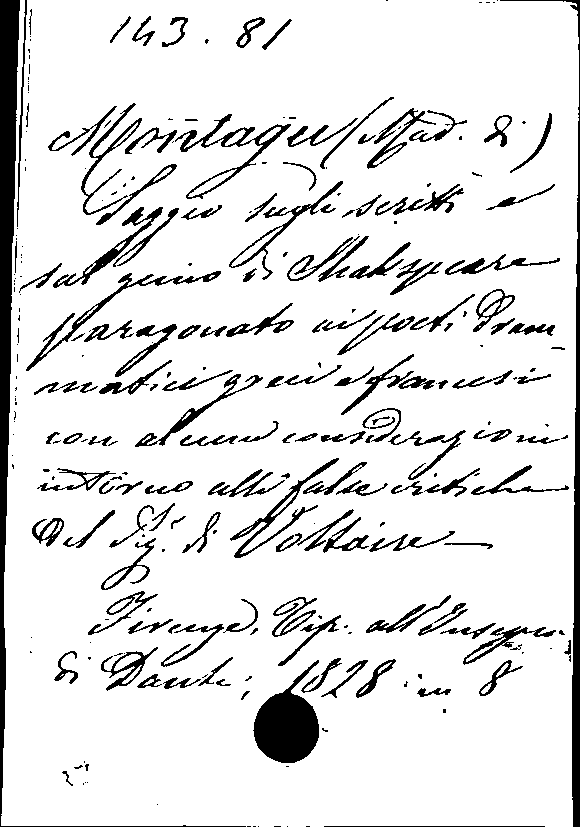 143.81
Montagu (Mad. di)
Saggio sugli scritti e
sul genio di Shakspeare
paragonato ai poeti dram-
matici greci e francesi
con alcune considerazioni
intorno alle false critiche
del Sig.r di Voltaire —
Firenze, Tip. all'Insegna
di Dante, 1828 in 8